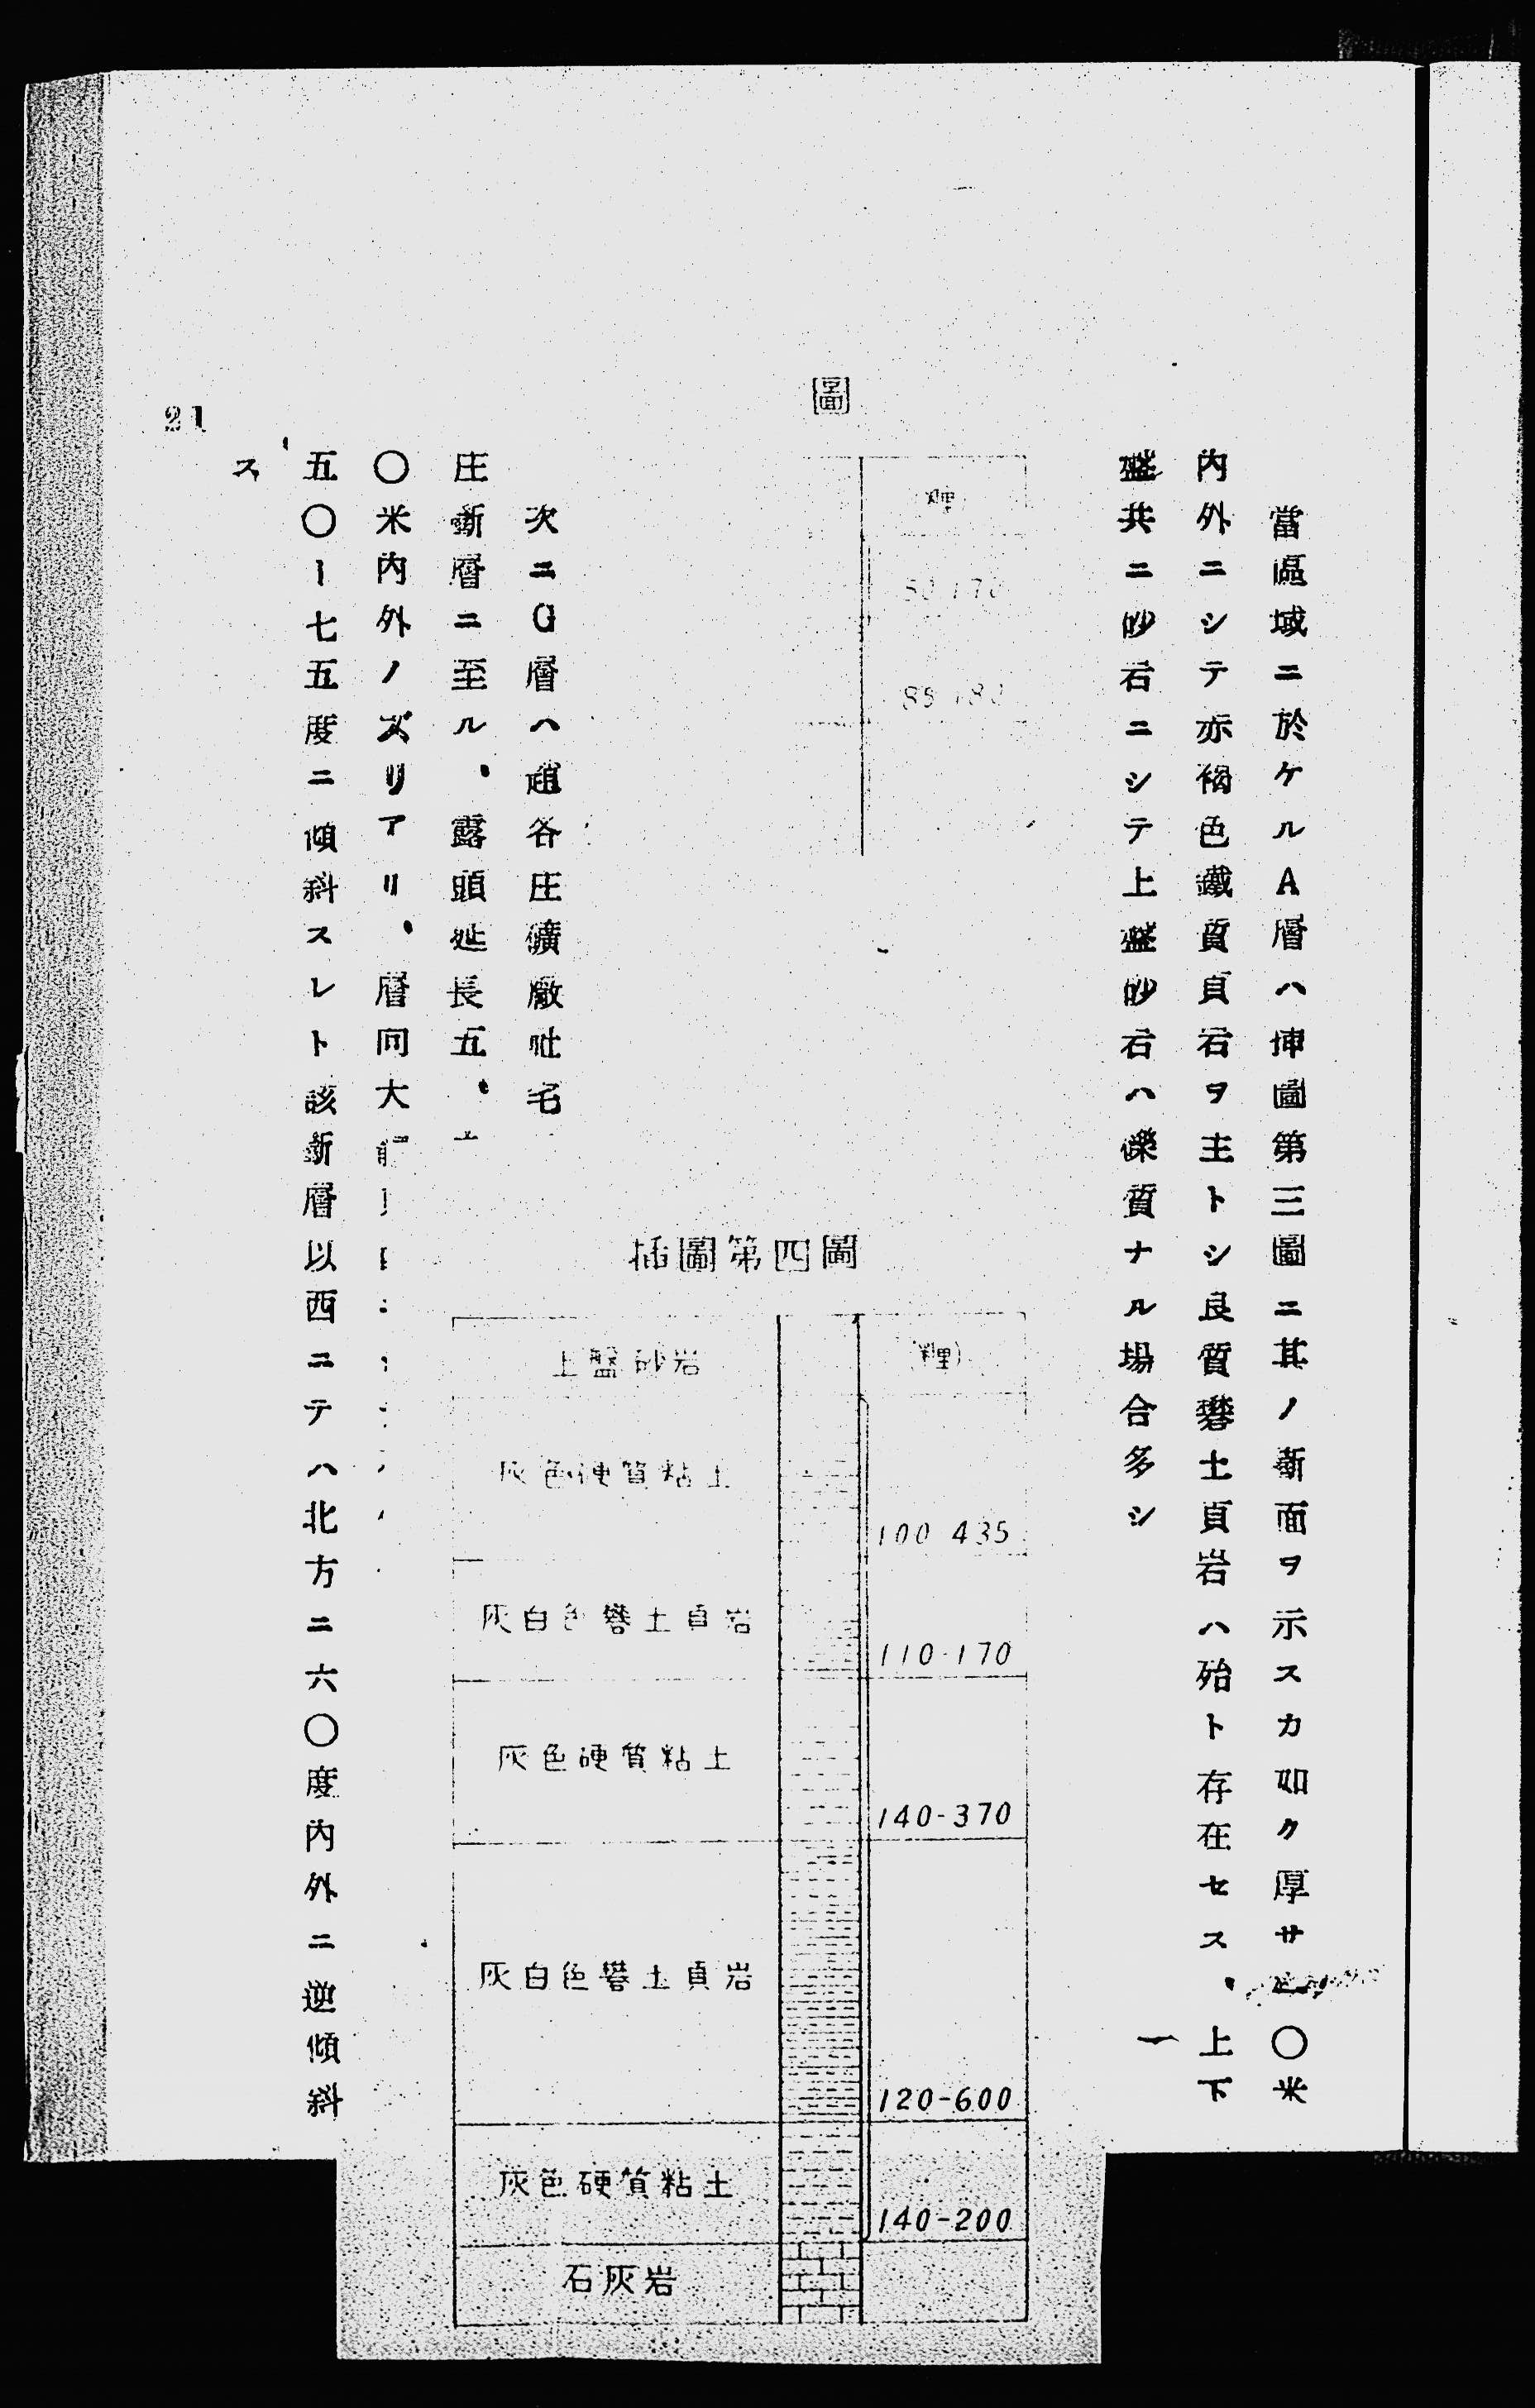 當區域ニ於ケルA層ハ挿圖第三圖ニ其ノ斷面ヲ示スカ如ク厚サ二〇米
内外ニシテ亦褐色鐵質頁岩ヲ主トシ良質礬土頁岩ハ殆ト存在セス、上下
盤共ニ砂岩ニシテ上盤砂岩ハ礫質ナル場合多シ
圖
糎
次ニG層ハ趙各庄礦廠
庄斷層ニ至ル、露頭延長五、
〇米内外ノズリアリ、層向大
五〇ー七五度ニ傾斜スレト該斷層以西ニテハ北方ニ六〇度内外ニ逆傾斜
ス
插圖第四圖
上盤砂岩 (糎)
灰色硬質粘土 100 435
灰白色礬土頁岩 110-170
灰色硬質粘土 140-370
灰白色礬土頁岩 120-600
灰色硬質粘土 140-200
石灰岩
21